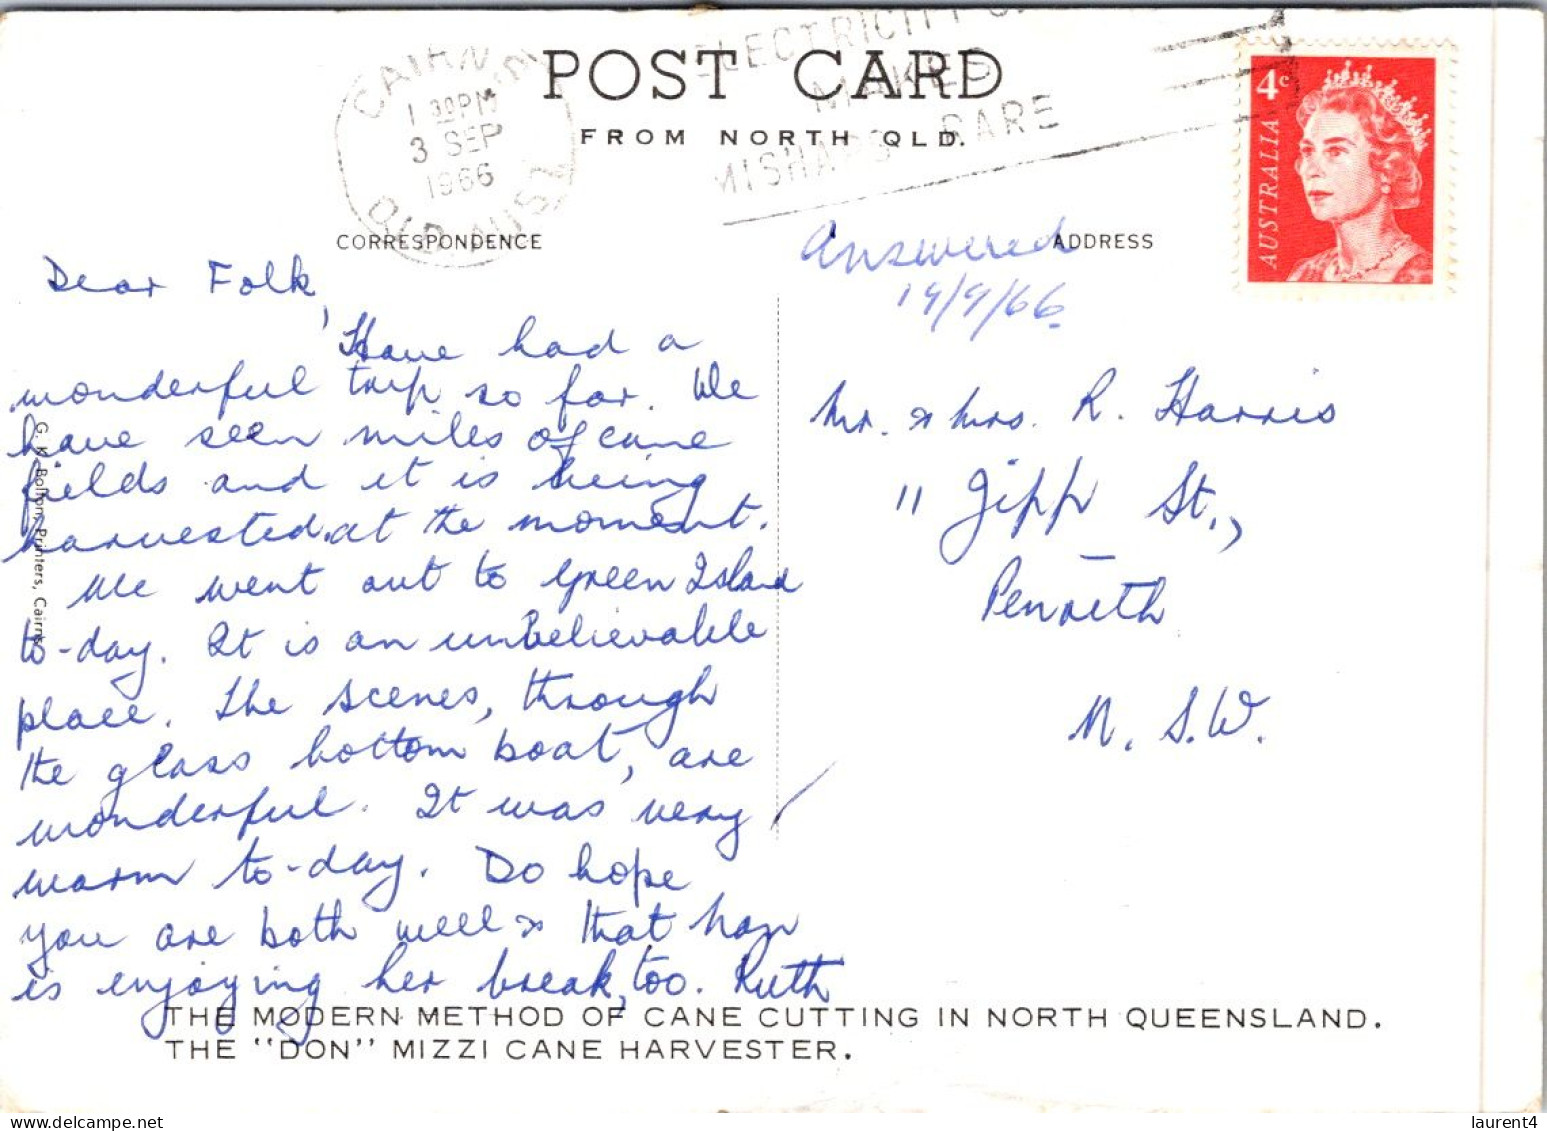 POST CARD
FROM NORTH QLD.
CAIRNS
1 30PM
3 SEP
1966
QLD-AUST
MAKES
MISHAPS RARE
4c
AUSTRALIA
CORRESPONDENCE
ADDRESS
Answered
19/9/66.
Dear Folk,
Have had a
wonderful trip so far. We
have seen miles of cane
fields and it is being
harvested at the moment.
We went out to Green Island
to-day. It is an unbelievable
place. The scenes, through
the glass bottom boat, are
wonderful. It was very
warm to-day. Do hope
you are both well & that
is enjoying her break, too. Ruth
Mr. & Mrs. R. Harris
11 Jipp St.,
Penrith
N.S.W.
G. K. Bolton, Printers, Cairns
THE MODERN METHOD OF CANE CUTTING IN NORTH QUEENSLAND.
THE "DON" MIZZI CANE HARVESTER.
laurent4